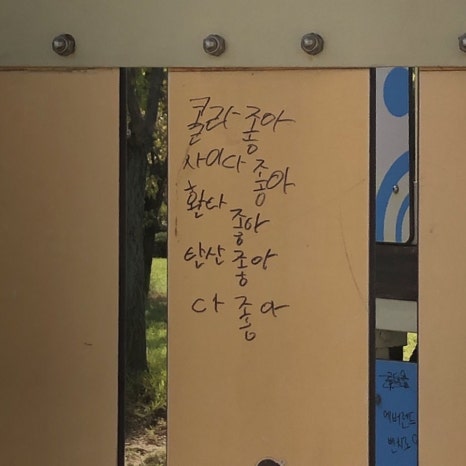 콜라 좋아
사이다 좋아
환타 좋아
탄산 좋아
다 좋아